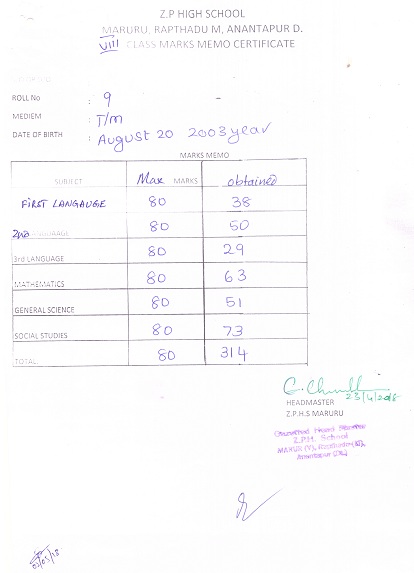 Z.P HIGH SCHOOL
MARURU, RAPTHADU M, ANANTAPUR D.
VIII CLASS MARKS MEMO CERTIFICATE
ROLL No : 9
MEDIEM : T/m
DATE OF BIRTH : August 20 2003 year
MARKS MEMO
SUBJECT Max MARKS obtained
FIRST LANGAUGE 80 38
2nd LANGUAGE 80 50
3rd LANGUAGE 80 29
MATHEMATICS 80 63
GENERAL SCIENCE 80 51
SOCIAL STUDIES 80 73
TOTAL 80 314
23/4/2018
HEADMASTER
Z.P.H.S MARURU
Gazetted Head Master
Z.P.H. School
MARUR (V), Rapthadu(M),
Anantapur (Dt.)